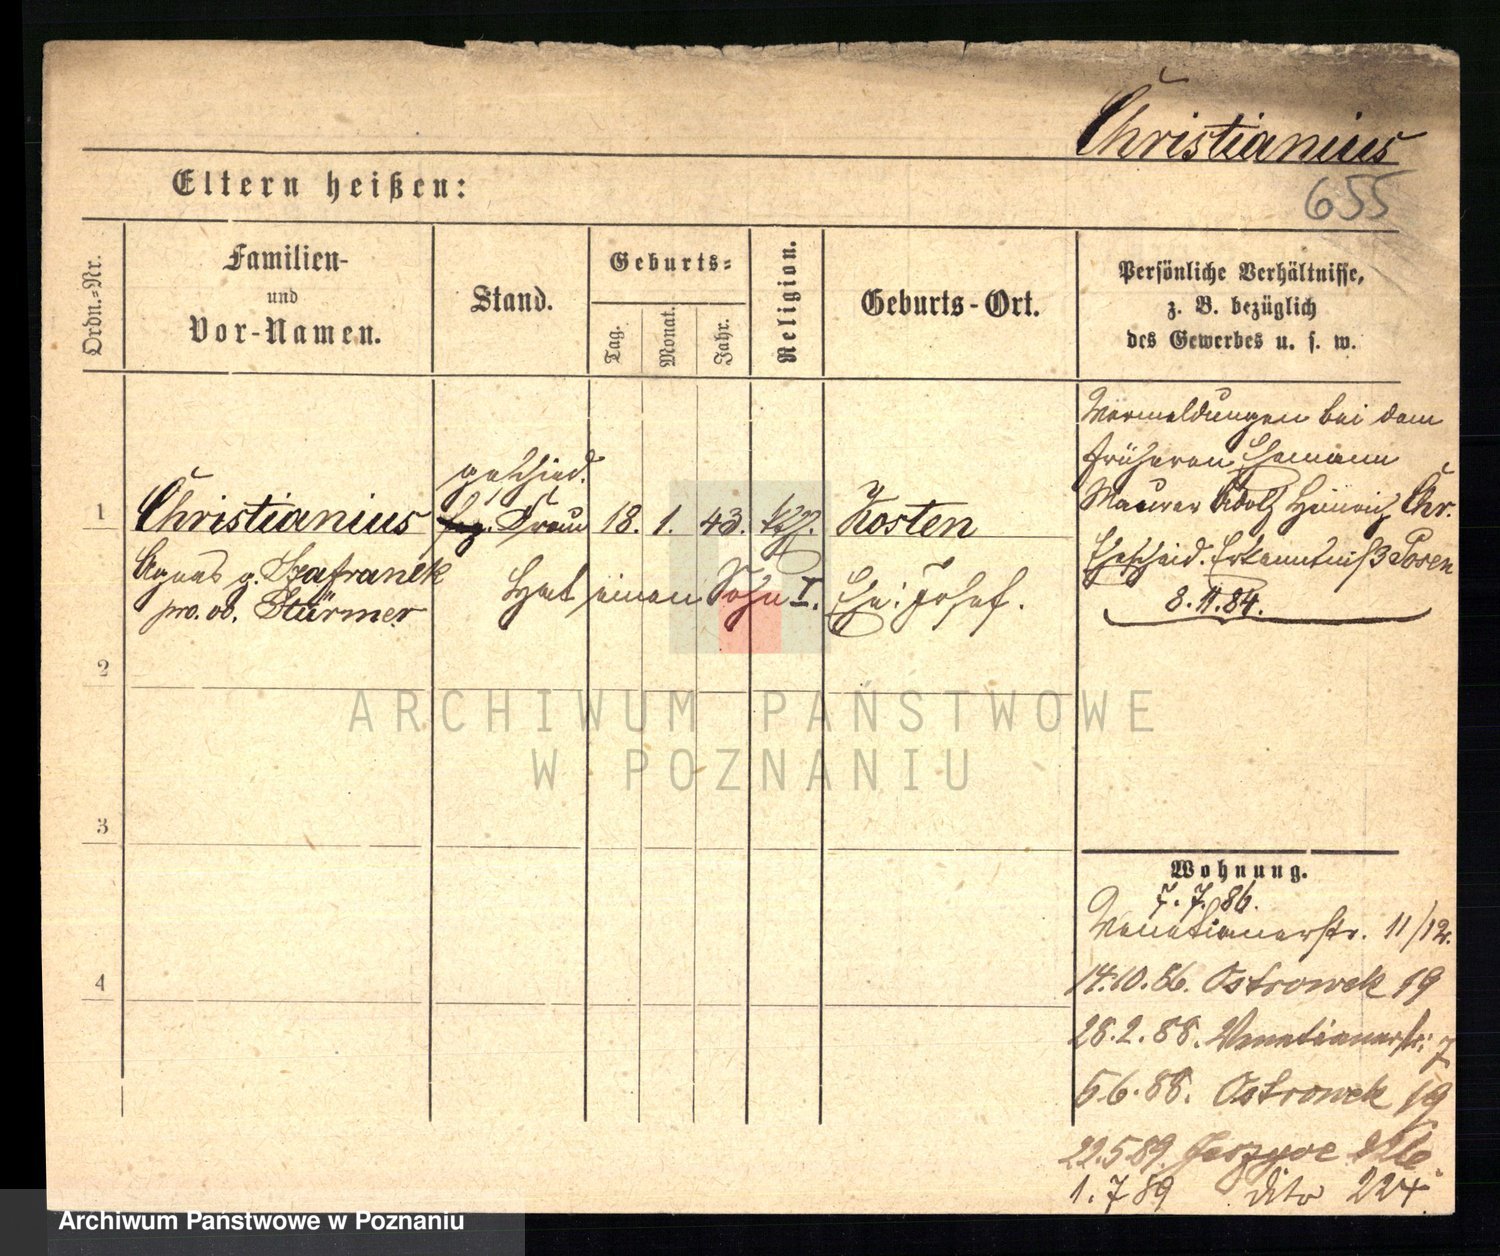 Christianius
655
Eltern heißen:
Ordn.-Nr.
Familien-
und
Vor-Namen.
Stand.
Geburts-
Tag.
Monat.
Jahr.
Religion.
Geburts-Ort.
Persönliche Verhältnisse,
z. B. bezüglich
des Gewerbes u. s. w.
Vermeldungen bei dem
früheren Ehemann
Maurer Adolf Heinrich Chr.
Ehescheid. Erkenntniß Posen
8.11.84.
geschied.
1 Christianius Frau 18. 1. 43. Kosten
Agnes g. Szafranek
pro. vo. Stürmer
Hat einen Sohn I. Ehe: Josef.
2
3
4
Wohnung.
7.7.86.
Venetianerstr. 11/12.
14.10.86. Ostrowek 19
28.2.88. Venetianerstr. 7
5.6.88. Ostrowek 19
22.5.89. Jeszyce
1.7.89 dito 224
ARCHIWUM PAŃSTWOWE
W POZNANIU
Archiwum Państwowe w Poznaniu